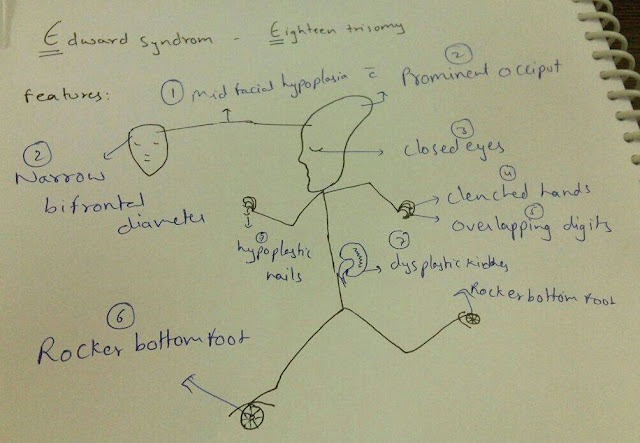 Edward Syndrom - Eighteen trisomy
features:
① Mid facial hypoplasia c̄
② Prominent Occiput
② Narrow
bifrontal
diameter
③ closed eyes
④ clenched hands
⑤ overlapping digits
hypoplastic
nails
⑦ dysplastic kidneys
Rocker bottom foot
⑥ Rocker bottom foot